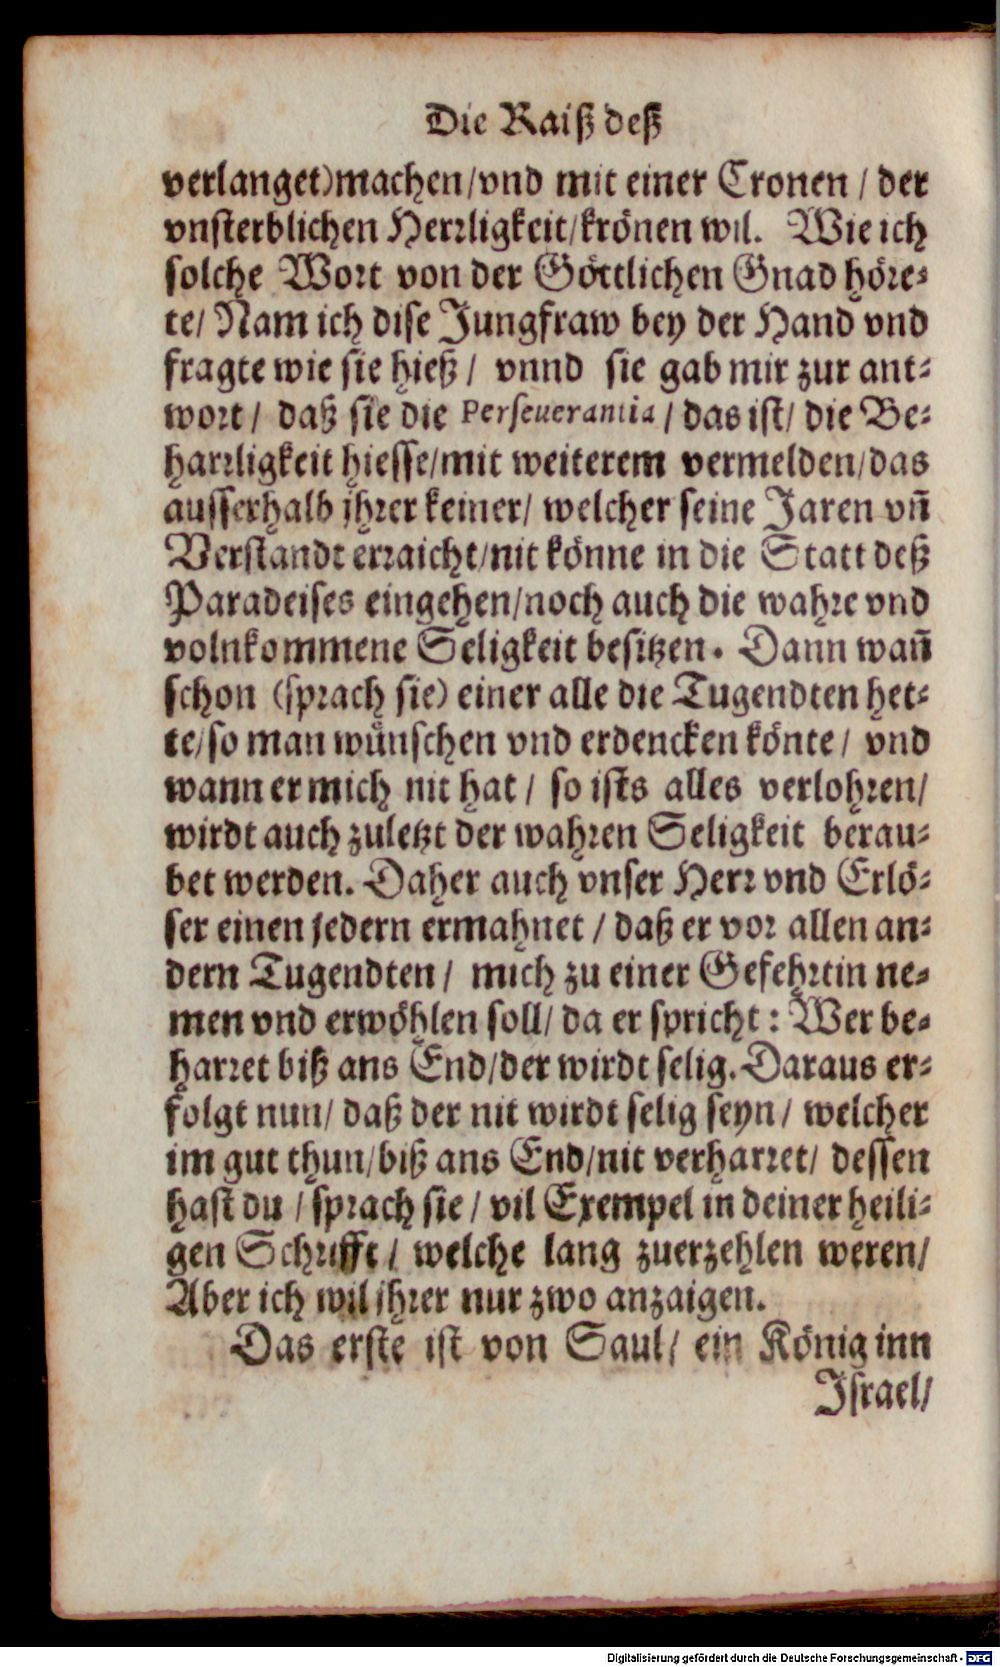 Die Raiß deß
verlanget)machen/vnd mit einer Cronen / der
vnsterblichen Herrligkeit/krönen wil. Wie ich
solche Wort von der Göttlichen Gnad höre-
te/ Nam ich dise Jungfraw bey der Hand vnd
fragte wie sie hieß / vnnd sie gab mir zur ant-
wort / daß sie die Perseuerantia / das ist/ die Be-
harrligkeit hiesse/mit weiterem vermelden/das
ausserhalb jhrer keiner/ welcher seine Jaren vñ
Verstandt erraicht/nit könne in die Statt deß
Paradeises eingehen/noch auch die wahre vnd
volnkommene Seligkeit besitzen. Dann wañ
schon (sprach sie) einer alle die Tugendten het-
te/so man wünschen vnd erdencken könte / vnd
wann er mich nit hat / so ists alles verlohren/
wirdt auch zuletzt der wahren Seligkeit berau-
bet werden. Daher auch vnser Herr vnd Erlö-
ser einen jedern ermahnet / daß er vor allen an-
dern Tugendten / mich zu einer Gefehrtin ne-
men vnd erwöhlen soll/ da er spricht : Wer be-
harret biß ans End/der wirdt selig. Daraus er-
folgt nun/ daß der nit wirdt selig seyn / welcher
im gut thun/biß ans End/nit verharret/ dessen
hast du / sprach sie / vil Exempel in deiner heili-
gen Schrifft / welche lang zuerzehlen weren/
Aber ich wil jhrer nur zwo anzaigen.
Das erste ist von Saul/ ein König inn
Israel/
Digitalisierung gefördert durch die Deutsche Forschungsgemeinschaft - DFG